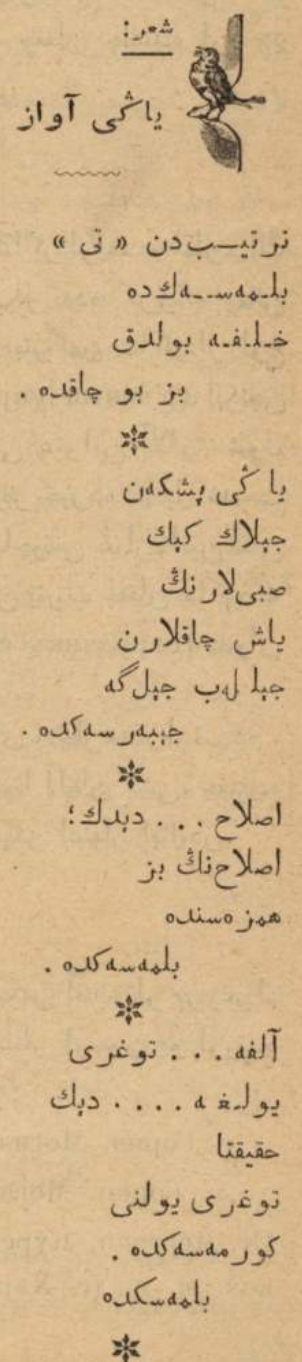 شعر:
ياڭى آواز
ترتيـبدن « تى »
بلـمەسـەكدە
خـلـفـە بولدق
بز بو چاقدە .
ياڭى پشكەن
جېلاك كېك
صبىلارنڭ
ياش چاقلارن
جېلەب جېلگە
جېبەرسەكدە .
اصلاح . . . دېدك؛
اصلاحنڭ بز
همزەسندە
بلمەسەكدە .
آلفە . . . توغرى
يولـغـە . . . . دېك
حقيقتا
توغرى يولنى
كورمەسەكدە .
بلمەسكدە